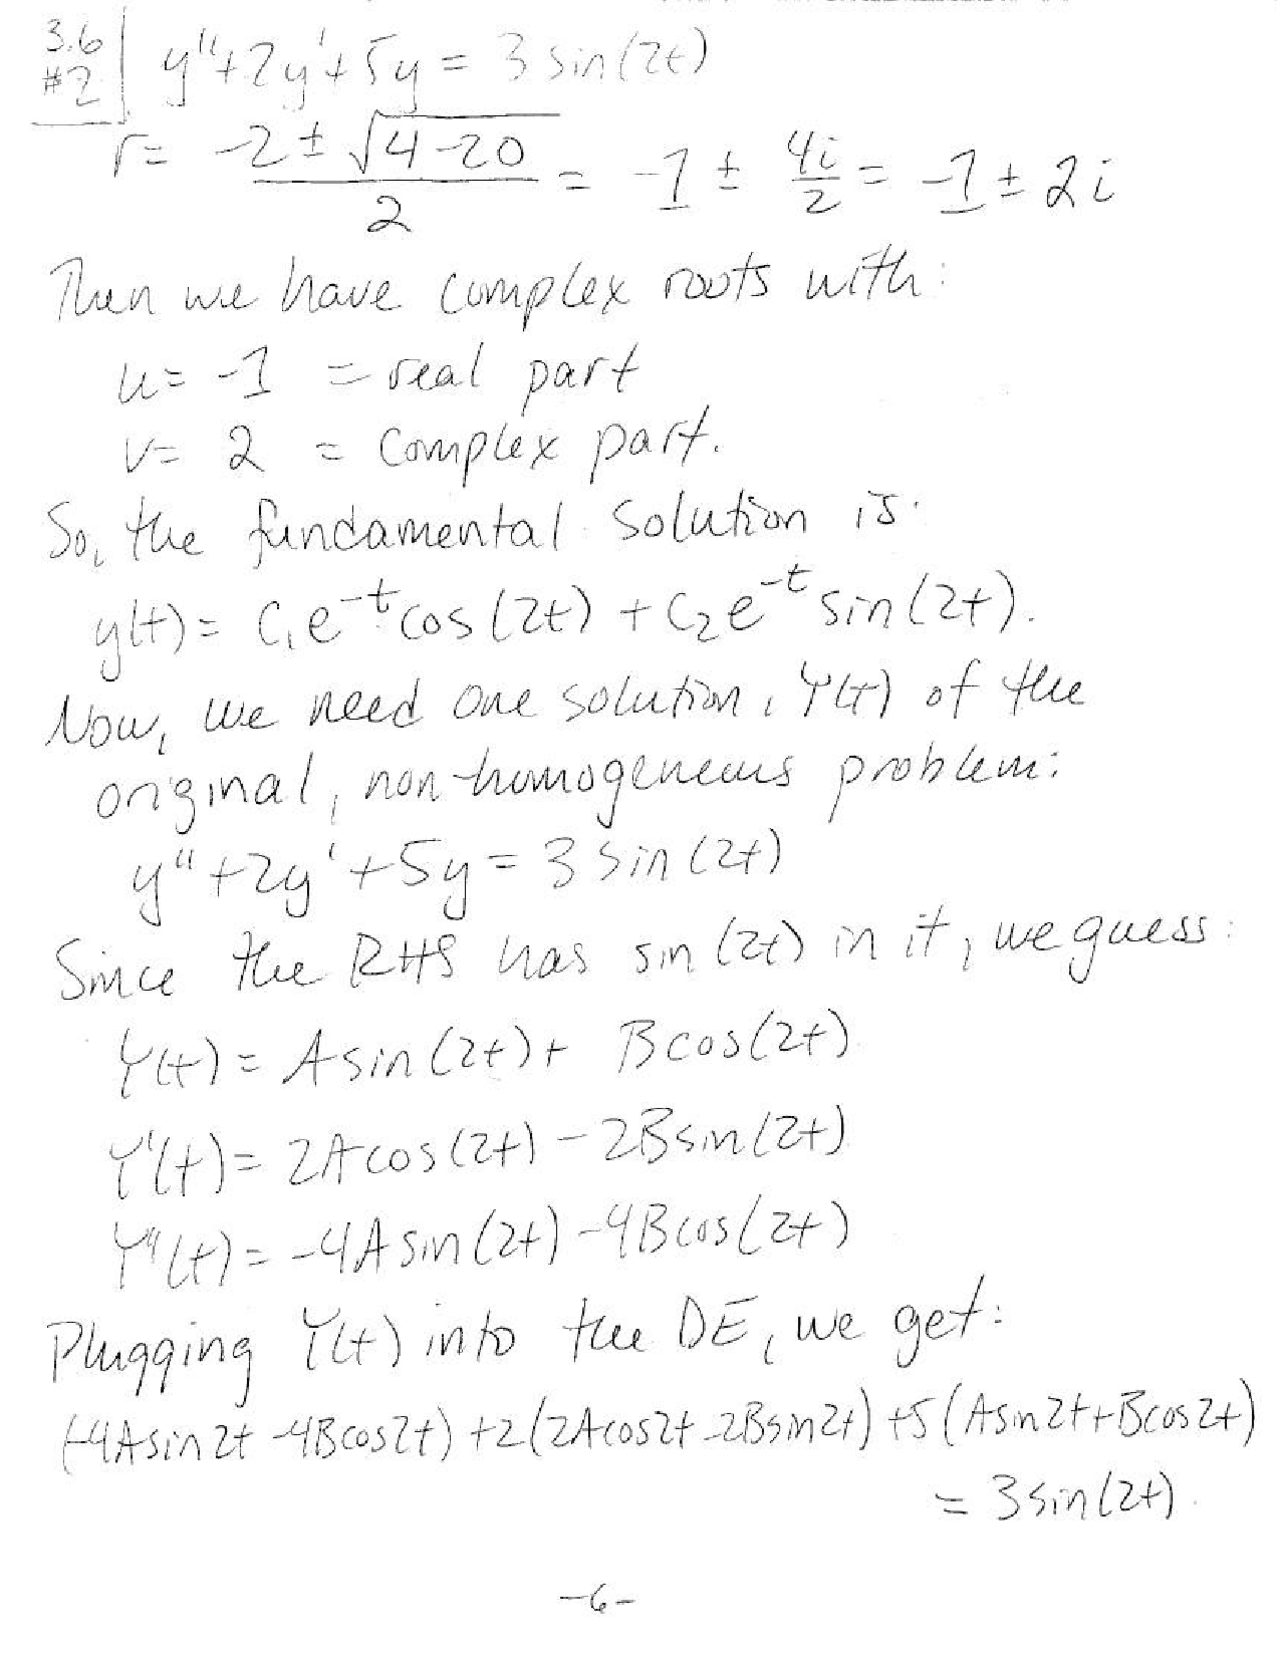 3.6
#2
y''+2y'+5y = 3 sin(2t)
r = (-2 ± √(4-20))/2 = -1 ± 4i/2 = -1 ± 2i
Then we have complex roots with:
u = -1 = real part
v = 2 = complex part.
So, the fundamental solution is:
y(t) = C₁e^-t cos(2t) + C₂e^-t sin(2t).
Now, we need one solution, Y(t) of the
original, non-homogeneous problem:
y''+2y'+5y = 3 sin(2t)
Since the RHS has sin(2t) in it, we guess:
Y(t) = A sin(2t) + B cos(2t)
Y'(t) = 2A cos(2t) - 2B sin(2t)
Y''(t) = -4A sin(2t) - 4B cos(2t)
Plugging Y(t) into the DE, we get:
(-4A sin 2t - 4B cos 2t) + 2(2A cos 2t - 2B sin 2t) + 5(A sin 2t + B cos 2t)
= 3 sin(2t).
-6-